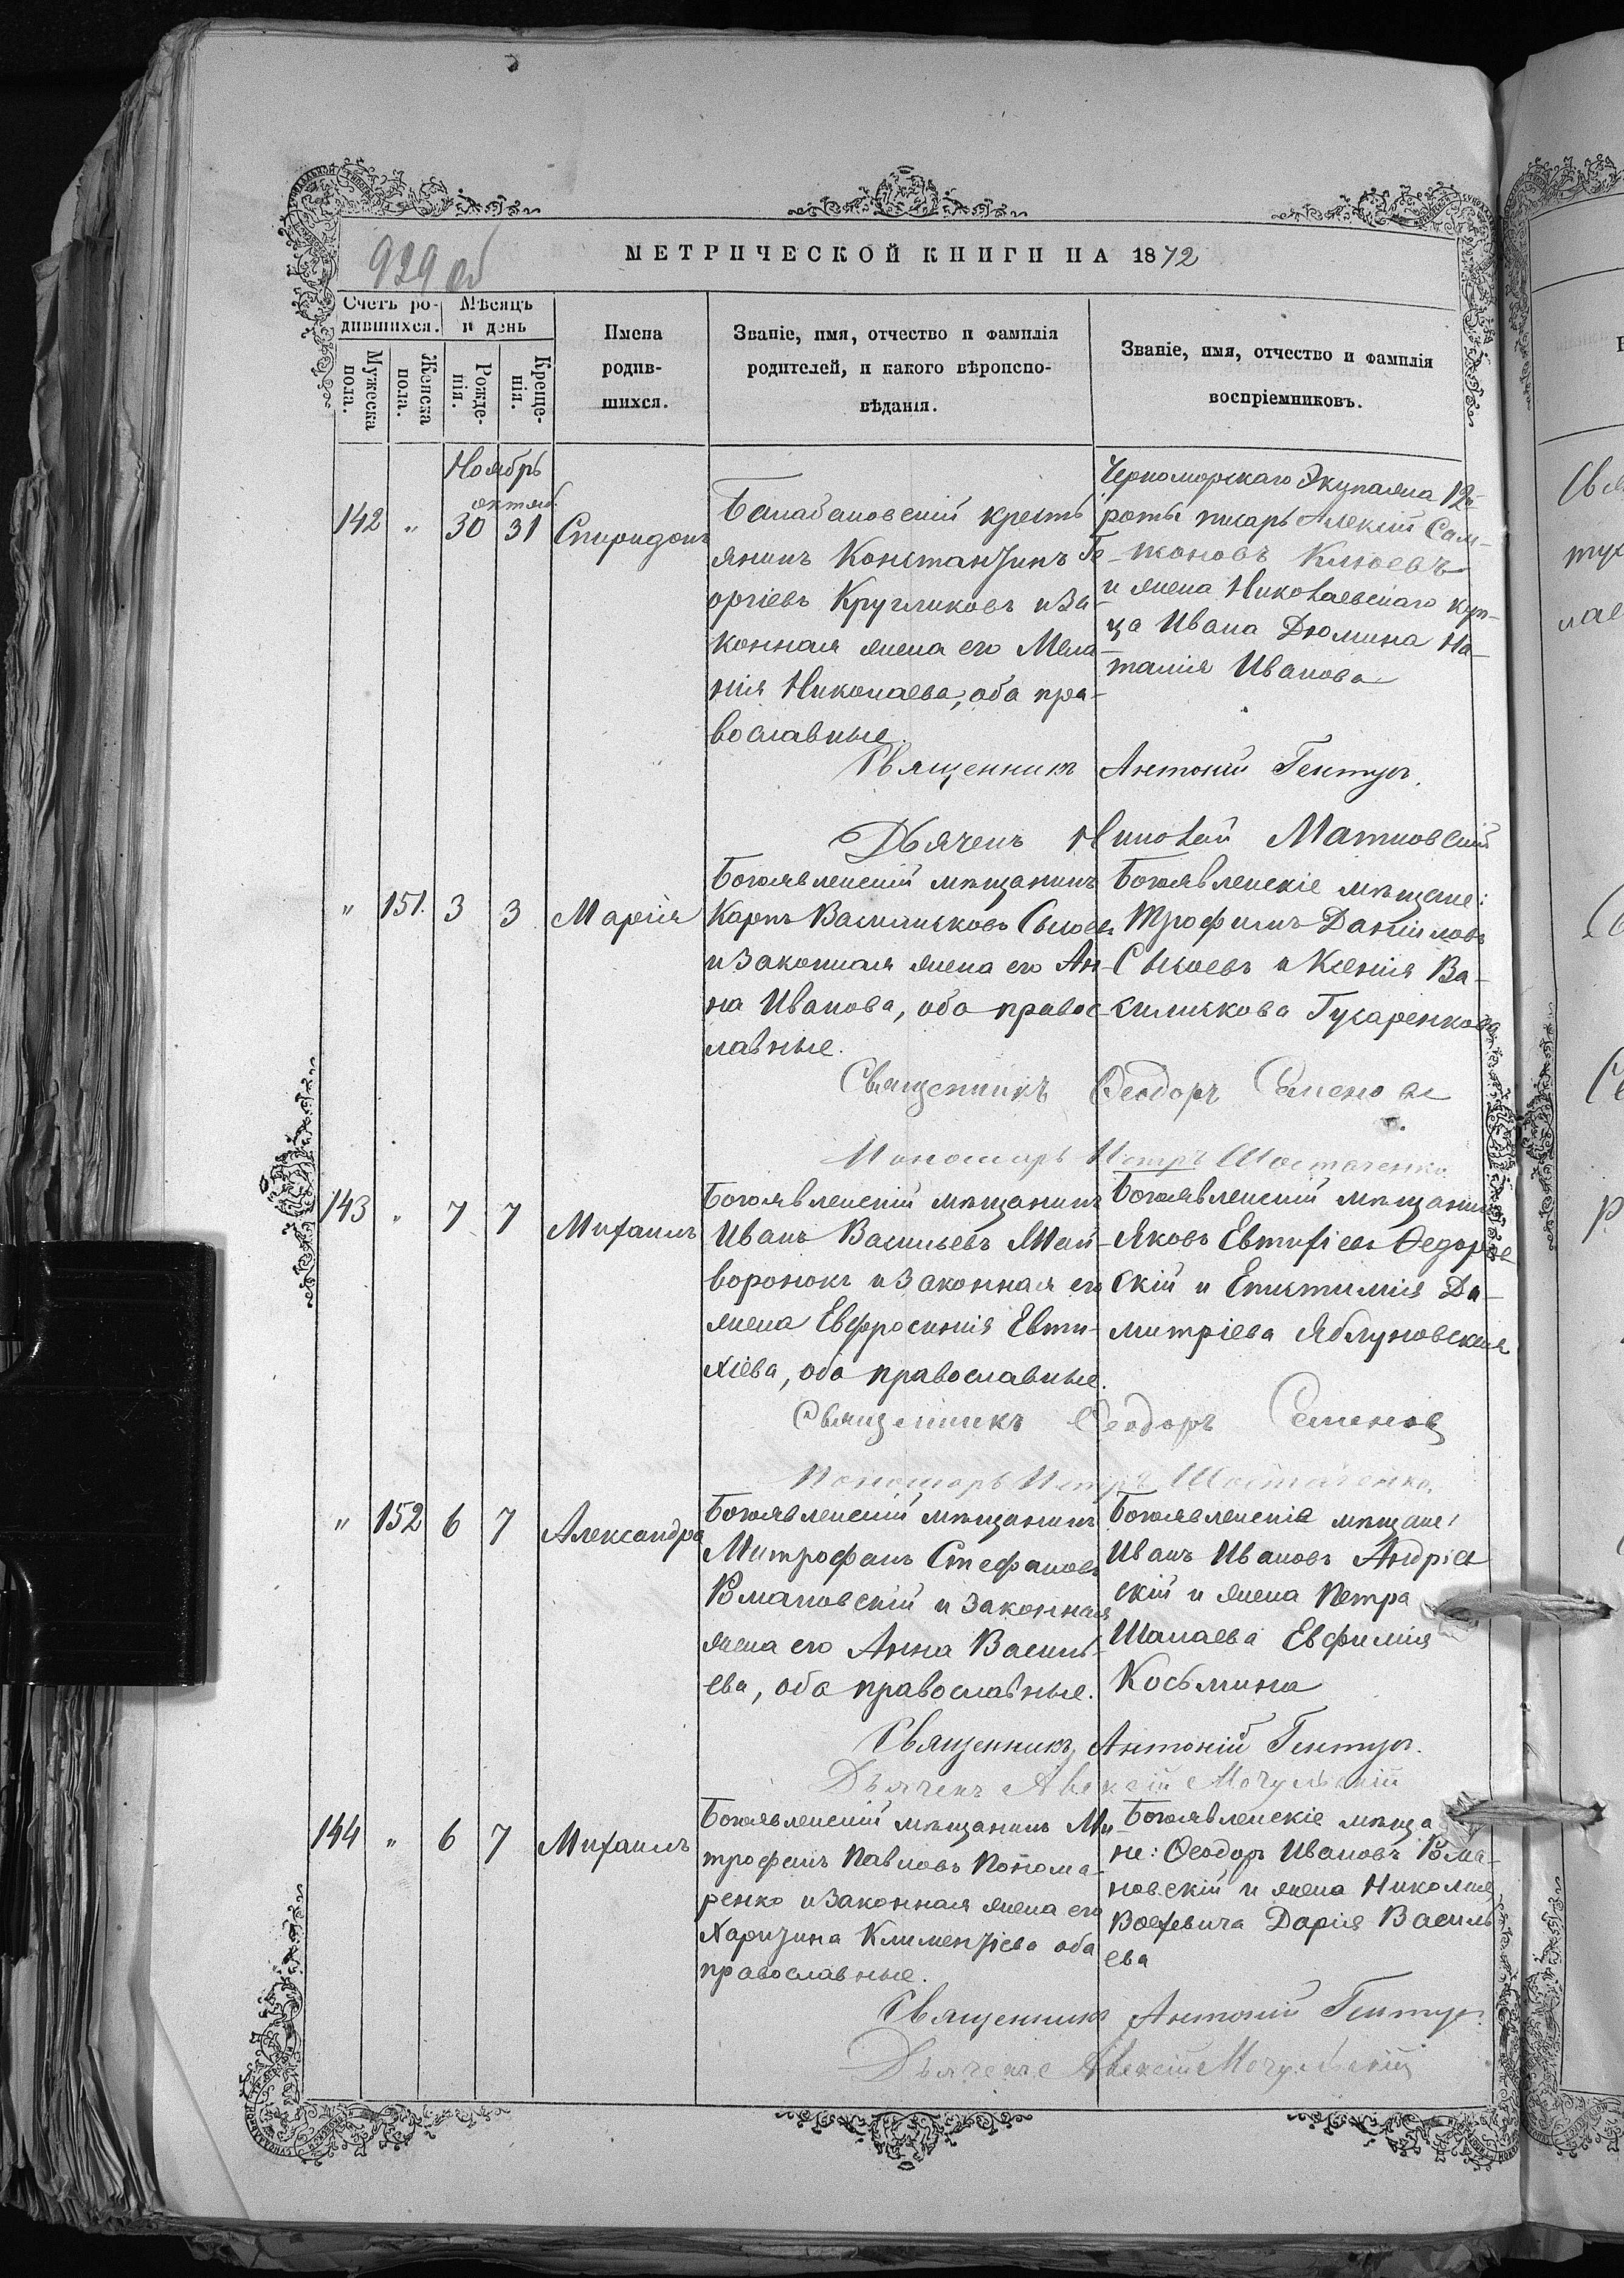 929 об
МЕТРИЧЕСКОЙ КНИГИ НА 1872
Счетъ ро-
дившихся.
Мѣсяцъ
и день
Мужеска
пола.
Женска
пола.
Рожде-
нія.
Креще-
нія.
Имена
родив-
шихся.
Званіе, имя, отчество и фамилія
родителей, и какого вѣроиспо-
вѣданія.
Званіе, имя, отчество и фамилія
воспріемниковъ.
Ноябрь
октяб.
142 " 30 31 Спиридонъ
Балабановскій кресть
янинъ Константинъ Ге
оргіевъ Кругликовъ и за
конная жена его Мела
нія Николаева, оба пра-
вославные.
Черноморскаго Экипажа 12й
роты писарь Алексій Сам-
соновъ Клюевъ
и жена Николаевскаго куп-
ца Ивана Дюмина На-
талія Иванова
Священникъ Антоній Гентуръ.
Дьячекъ Николай Матковскій
" 151. 3 3 Марія
Богоявленскій мѣщанинъ
Карпъ Васильковъ Сысоевъ
и законная жена его Ан-
на Иванова, оба правос-
лавные.
Богоявленскіе мѣщане:
Трофимъ Даніиловъ
Сысоевъ и Ксенія Ва-
силькова Гусаренкова
Священникъ Ѳеодоръ Семенов
Пономарь Петръ Шостаченко
143 " 7 7 Михаилъ
Богоявленскій мѣщанинъ
Иванъ Васильевъ Жай-
воронокъ и законная его
жена Евфросинія Евти-
хіева, оба православные.
Богоявленскій мѣщанинъ
Яковъ Евтихіевъ Ѳедоров
скій и Епистимія Ди-
митріева Яблуновская
Священникъ Ѳеодоръ Семенов
Пономарь Петръ Шостаченко.
" 152 6 7 Александра
Богоявленскій мѣщанинъ
Митрофанъ Стефановъ
Вмановскій и законная
жена его Анна Василь-
ева, оба православные.
Богоявленскіе мѣщане:
Иванъ Ивановъ Андріев
скій и жена Петра
Шалаева Евфимія
Косьмина
Священникъ Антоній Гентуръ.
Дьячекъ Алексій Мочульскій
144 " 6 7 Михаилъ
Богоявленскій мѣщанинъ Ми
трофанъ Павловъ Понома-
ренко и законная жена его
Харитина Климентіева оба
православные.
Богоявленскіе мѣща
не: Ѳеодоръ Ивановъ Вма-
новскій и жена Николая
Дарія Василь
ева
Священникъ Антоній Гентуръ.
Дьячекъ Алексій Мочульскій